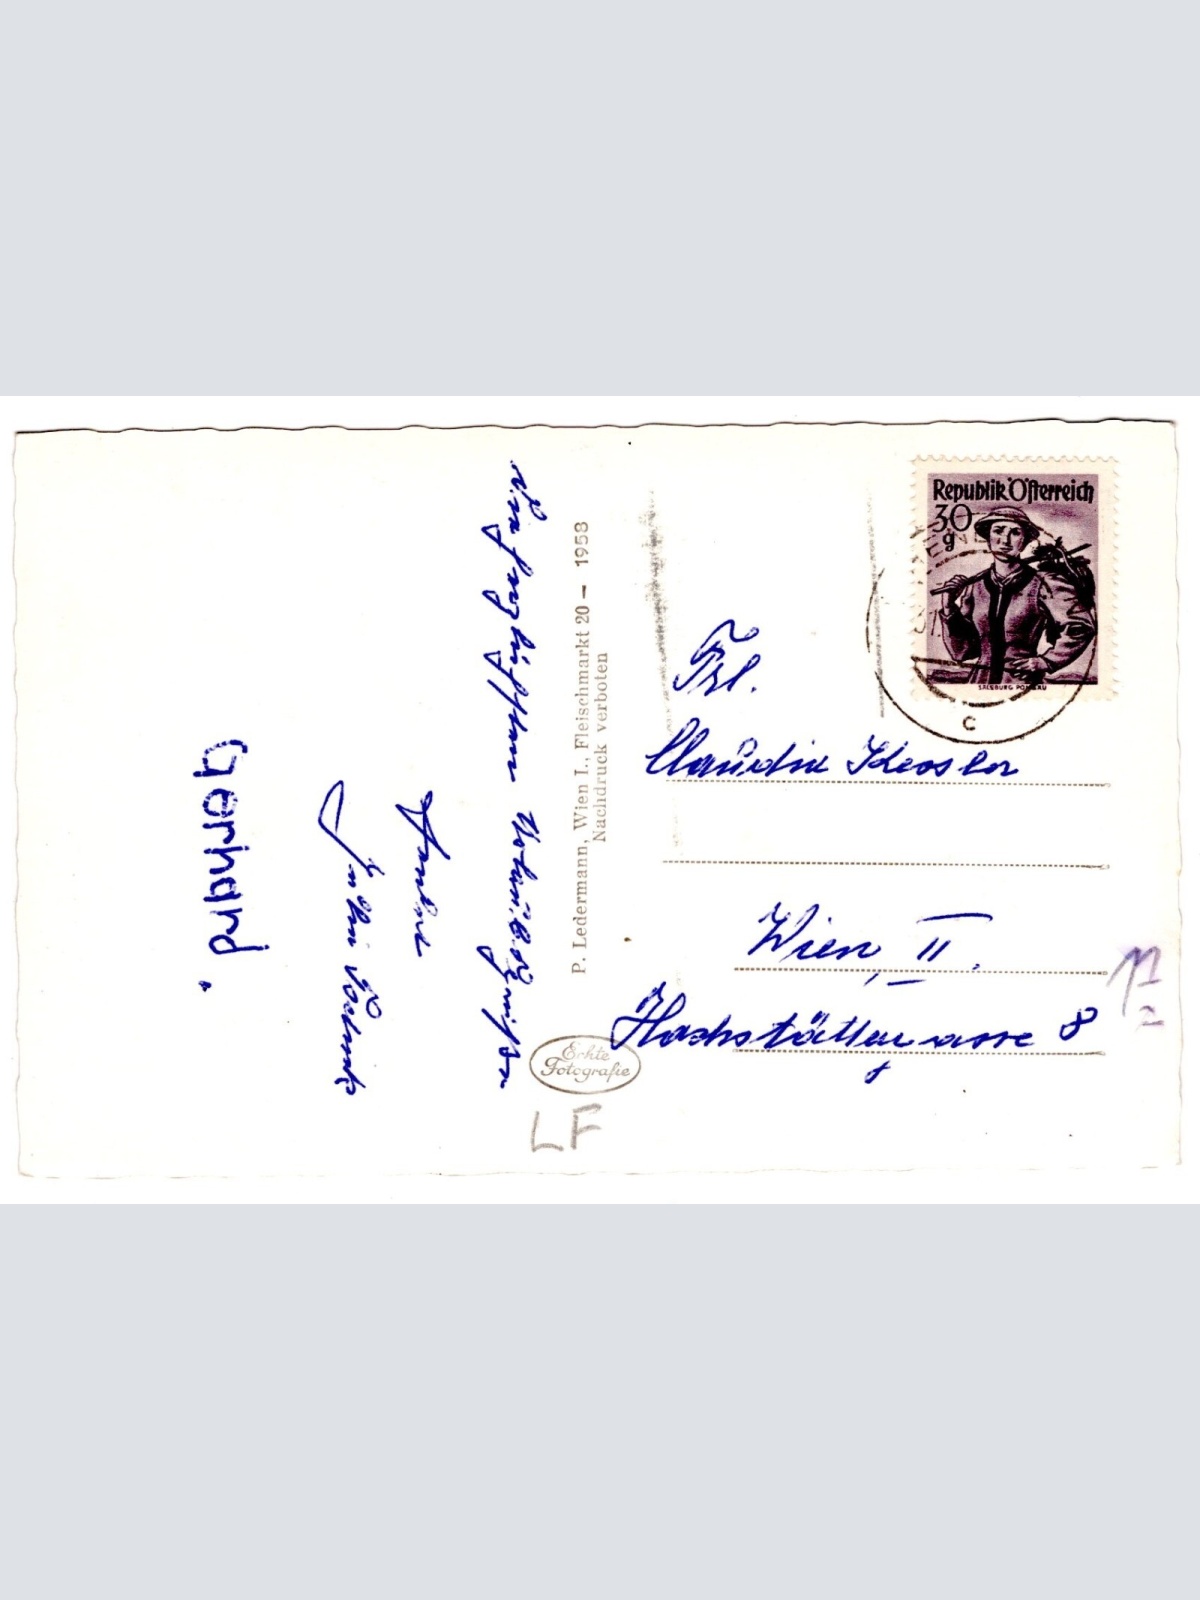 Die herzlichsten Urlaubsgrüße
Tante
Gerhard.
P. Ledermann, Wien I., Fleischmarkt 20 – 1953
Nachdruck verboten
Echte
Fotografie
LF
Republik Österreich
30
g
SALZBURG PONGAU
C
Frl.
Claudia Kessler
Wien, II.
Hochstättgasse 8